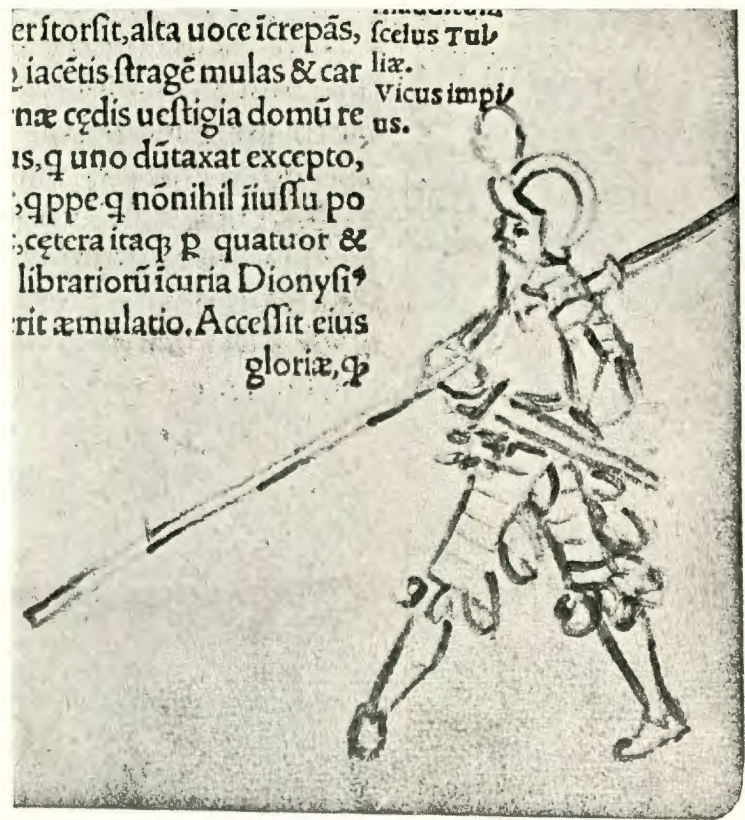 erſtorſit,alta uoce īcrepās,
iacētis ſtragē mulas & car
næ cędis ueſtigia domū re
us,q uno dūtaxat excepto,
,qppe q nōnihil īiuſſu po
,cętera itaqꝫ ꝑ quatuor &
librariorū īcuria Dionyſiꝰ
rit æmulatio.Acceſſit eius
gloriæ,qꝫ
ſcelus Tul⸗
liæ.
Vicus impi⸗
us.